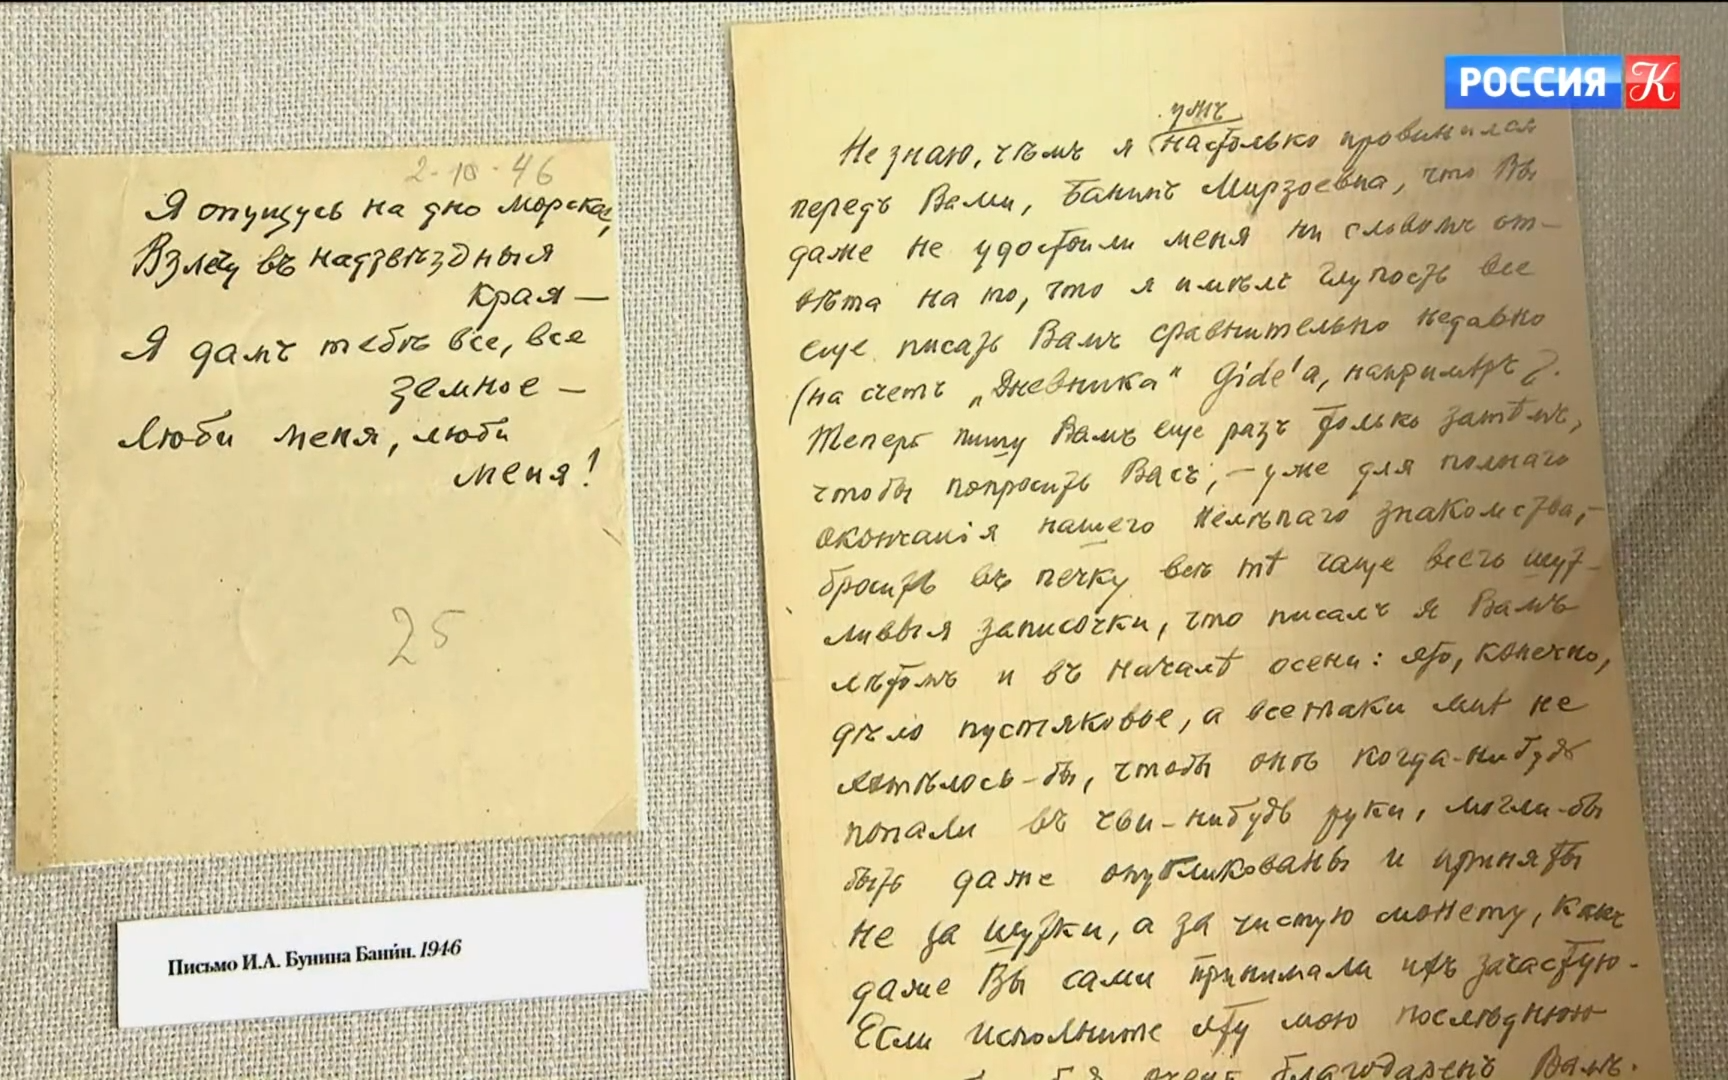 РОССИЯ К
2-10-46
Я опущусь на дно морское,
Взлечу въ надзвѣздныя
края —
Я дамъ тебѣ все, все
земное —
Люби меня, люби
меня!
25
Письмо И.А. Бунина Бани́н. 1946
ужъ
Не знаю, чѣмъ я настолько провинился
передъ Вами, Банинъ Мирзоевна, что Вы
даже не удостоили меня ни словомъ от-
вѣта на то, что я имѣлъ глупость все
еще писать Вамъ сравнительно недавно
(на счетъ „Дневника“ Gide'а, напримѣръ).
Теперь пишу Вамъ еще разъ только затѣмъ,
чтобы попросить Васъ, — уже для полнаго
окончанія нашего нелѣпаго знакомства, —
бросить въ печку всѣ тѣ чаще всего шут-
ливыя записочки, что писалъ я Вамъ
лѣтомъ и въ началѣ осени: это, конечно,
дѣло пустяковое, а всетаки мнѣ не
хотѣлось-бы, чтобы онѣ когда-нибудь
попали въ чьи-нибудь руки, могли-бы
быть даже опубликованы и приняты
не за шутки, а за чистую монету, какъ
даже Вы сами принимали ихъ зачастую.
Если исполните эту мою послѣднюю
благодаренъ Вамъ.